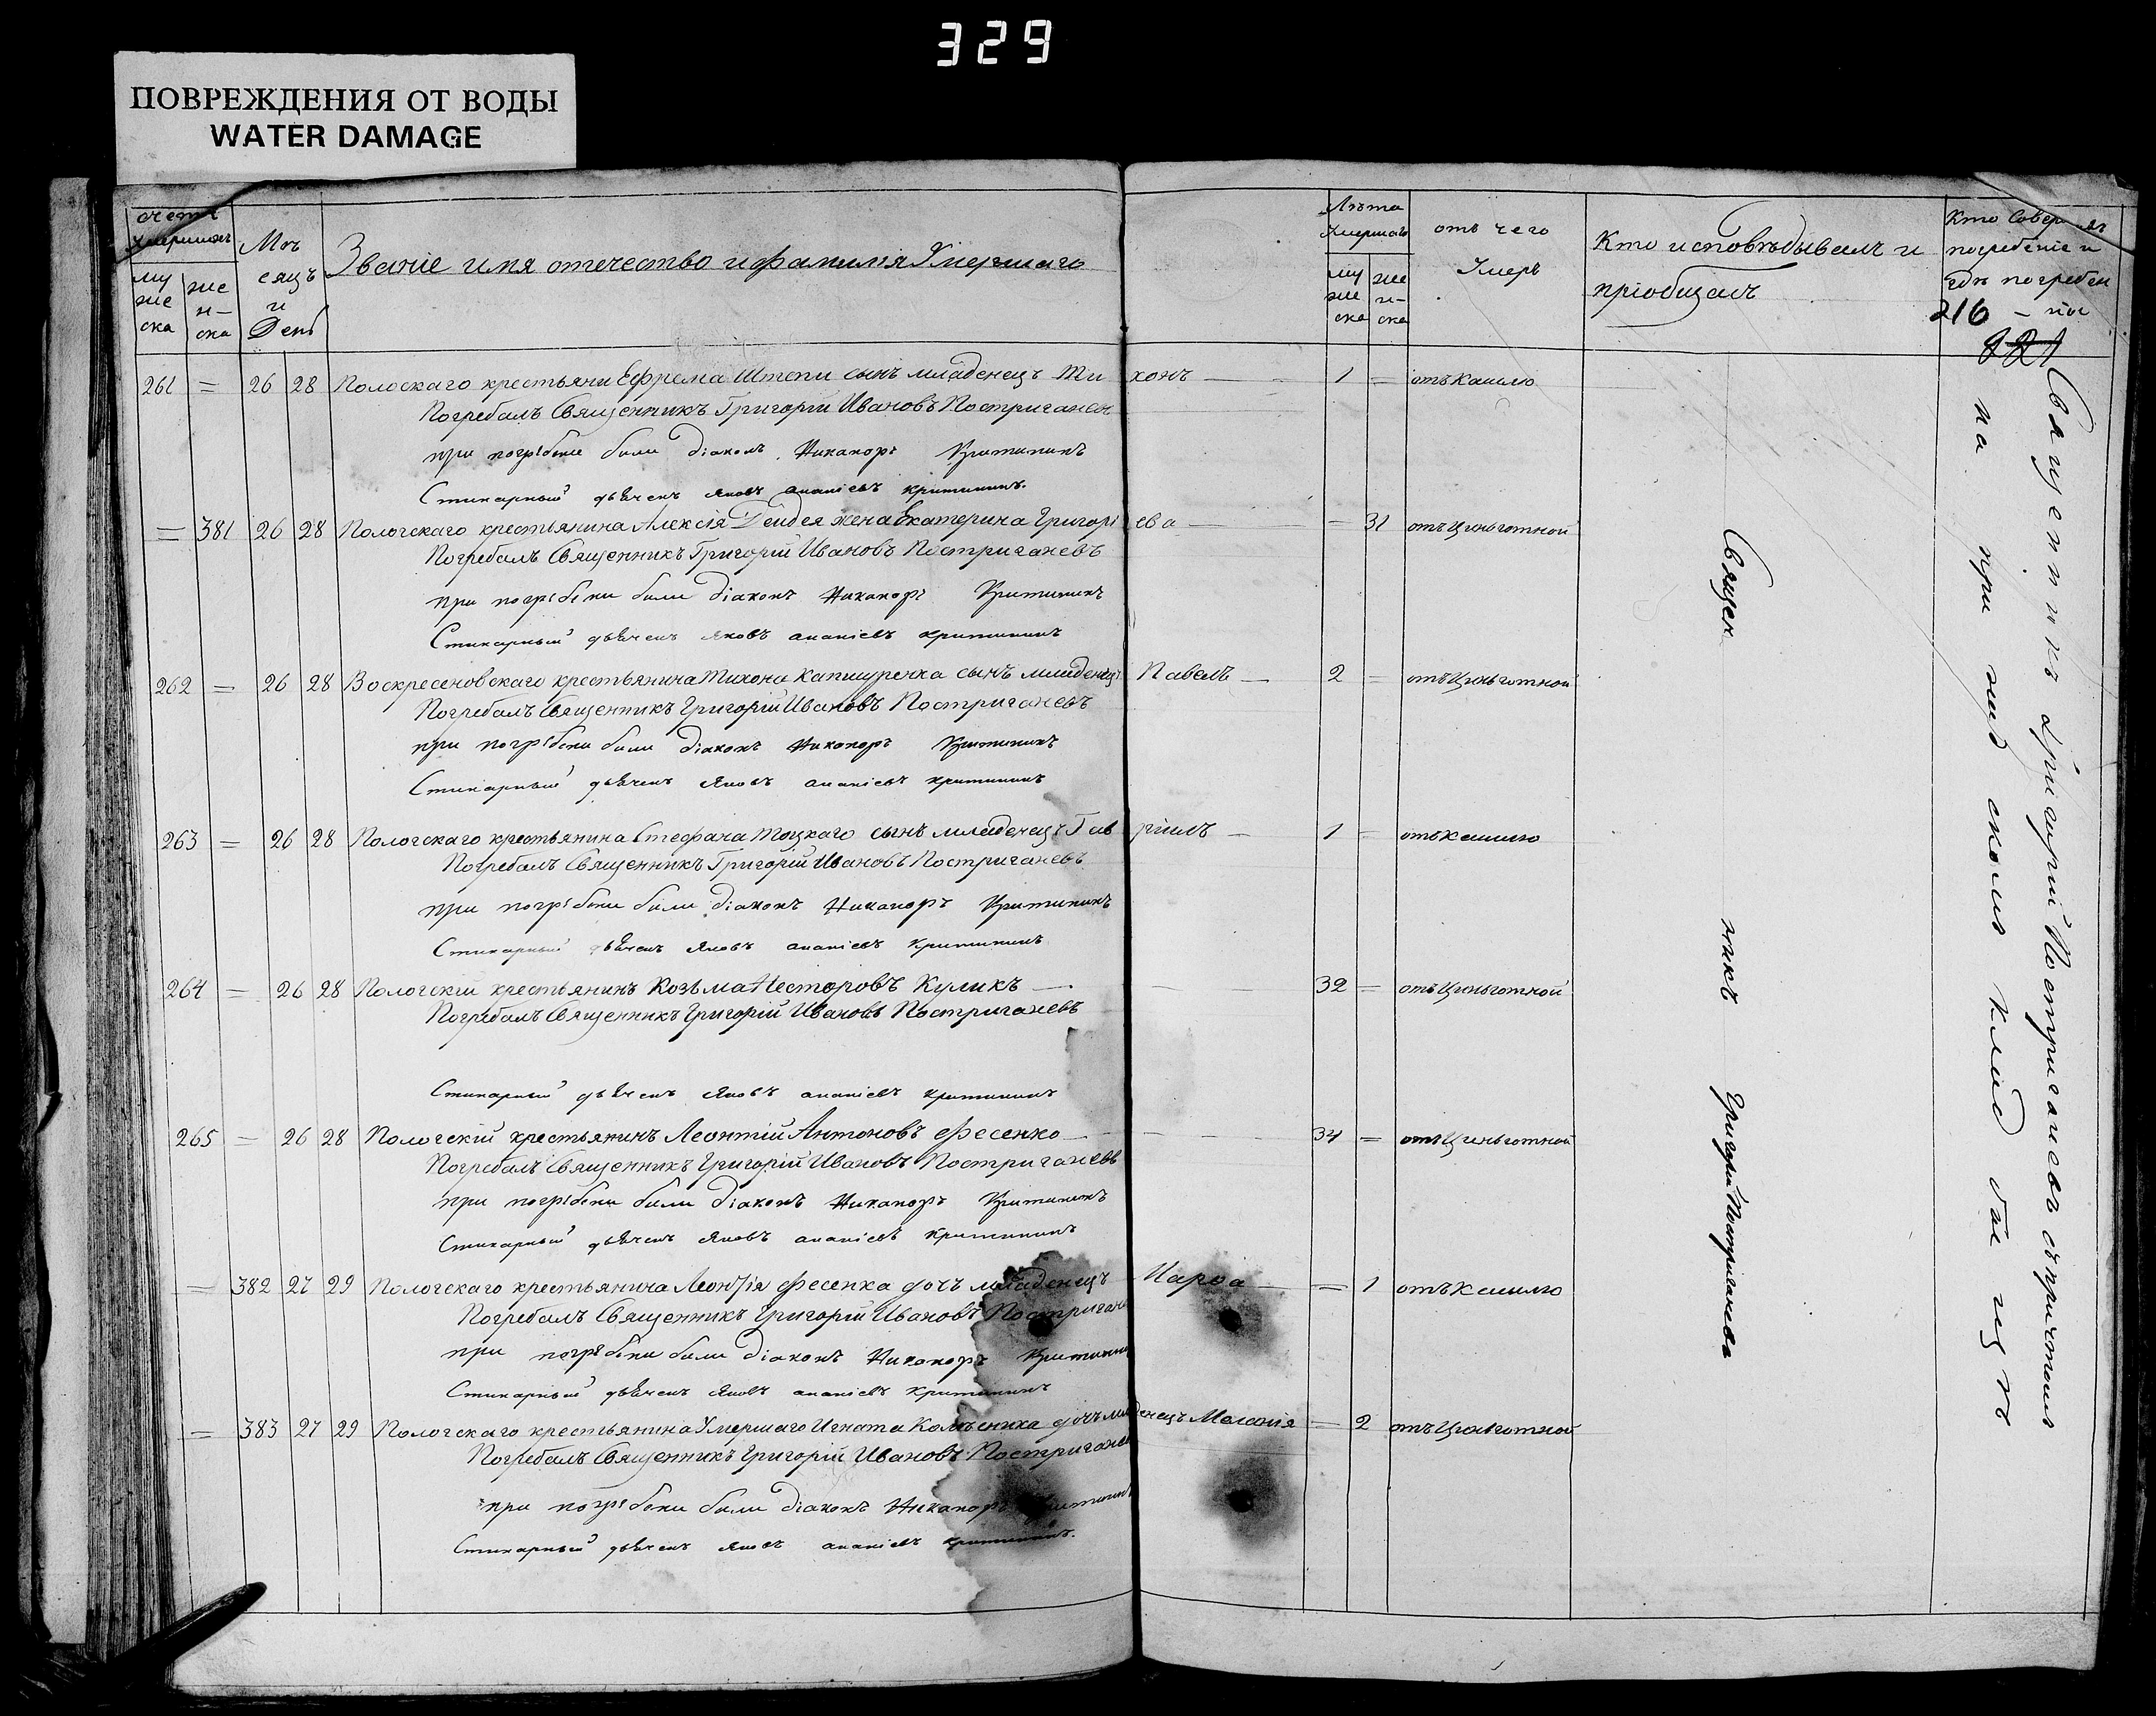 329
ПОВРЕЖДЕНИЯ ОТ ВОДЫ
WATER DAMAGE
счетъ умершихъ
муже ска
жен– ска
Месяцъ и День
Званіе имя отечество и фамилия Умершаго
Лѣта Умершаго
муже ска
жен– ска
отъ чего Умеръ
Кто исповѣдывалъ и пріобщалъ
Кто Совершалъ погребеніе и гдѣ погребен
216
261 = 26 28 Пологскаго крестьяни Ефрема Штепи сынъ младенецъ Ти хонъ — 1 = отъ Кашлю
Погребалъ Священникъ Григорій Ивановъ Постриганев
при погребени били діаконъ Никаноръ Критининъ
Стихарный дьячекъ Яковъ ананіевъ критининъ.
= 381 26 28 Пологскаго крестьянина Алексія жена Екатерина Григорі ева — = 31 отъ Цынготной
Погребалъ Священникъ Григорій Ивановъ Постриганевъ
при погребени били діаконъ Никаноръ Критининъ
Стихарный дьячекъ Яковъ ананіевъ критининъ
262 = 26 28 Воскресеновскаго крестьянина Тихона Капшуренка сынъ младенецъ Павелъ — 2 = отъ Цынготной
Погребалъ Священникъ Григорій Ивановъ Постриганевъ
при погребени били діаконъ Никаноръ Критининъ
Стихарный дьячекъ Яковъ ананіевъ критининъ
263 = 26 28 Пологскаго крестьянина Стефана Тоцкаго сынъ младенецъ Гав ріилъ — 1 = отъ Кашлю
Погребалъ Священникъ Григорій Ивановъ Постриганевъ
при погребени били діаконъ Никаноръ Критининъ
Стихарный дьячекъ Яковъ ананіевъ критининъ
264 = 26 28 Пологскій крестьянинъ Козьма Несторовъ Куликъ — 32 = отъ Цынготной
Погребалъ Священникъ Григорій Ивановъ Постриганевъ
Стихарный дьячекъ Яковъ ананіевъ критининъ
265 = 26 28 Пологскій крестьянинъ Леонтій Антоновъ Фесенко — 34 = отъ Цынготной
Погребалъ Священникъ Григорій Ивановъ Постриганевъ
при погребени били діаконъ Никаноръ Критининъ
Стихарный дьячекъ Яковъ ананіевъ критининъ
= 382 27 29 Пологскаго крестьянина Леонтія Фесенка дочь младенецъ = 1 отъ Кашлю
Погребалъ Священникъ Григорій Ивановъ Постриган
при погребени били діаконъ Никаноръ Критинин
Стихарный дьячекъ Яковъ ананіевъ критининъ
= 383 27 29 Пологскаго крестьянина Умершаго Игната Колѣсника дочь младенецъ Меланія = 2 отъ Цынготной
Погребалъ Священникъ Григорій Ивановъ Постриганев
при погребени били діаконъ Никаноръ Критининъ
Стихарный дьячекъ Яковъ ананіевъ критининъ.
Священ никъ Григорій Постриганевъ
Священникъ Григорій Постриганевъ съ причтомъ
на при